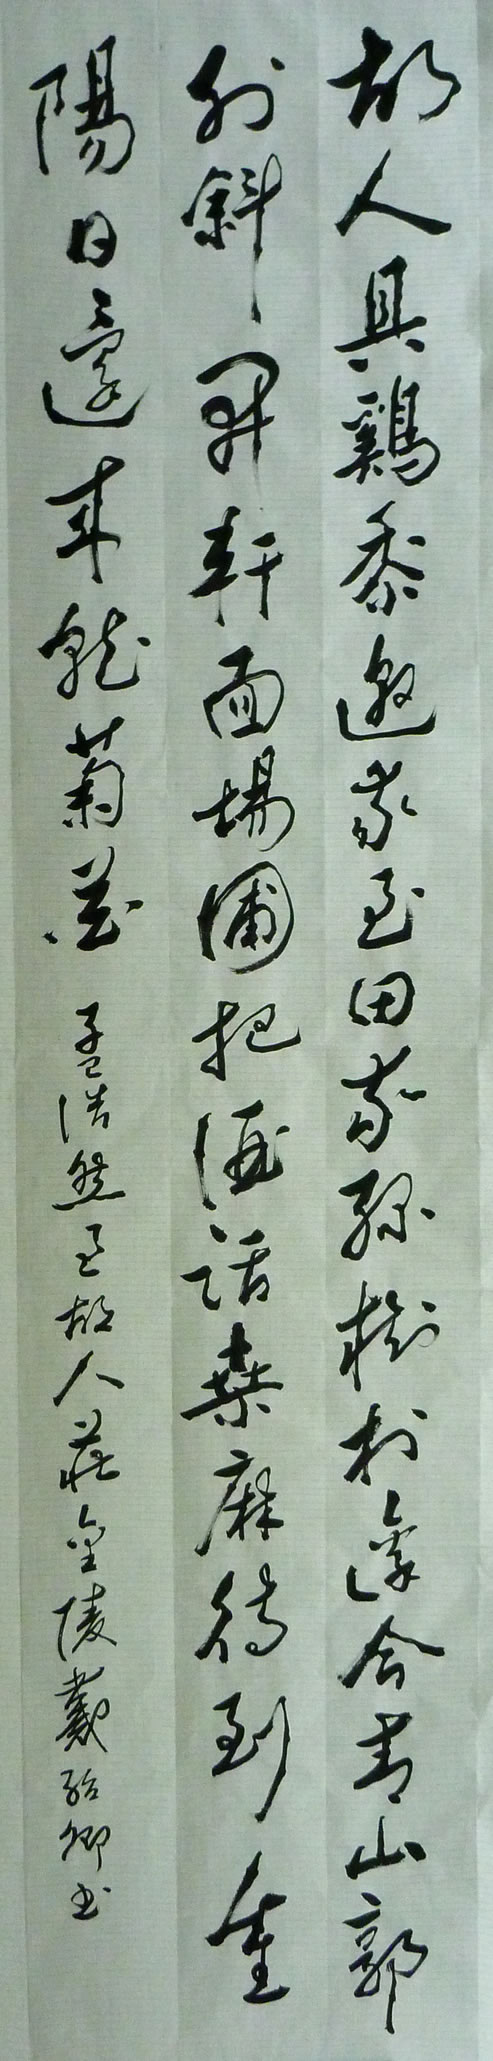 故人具鷄黍邀我至田家綠樹村邊合青山郭
外斜開軒面場圃把酒話桑麻待到重
陽日還來就菊花 孟浩然過故人莊金陵戴紹卿书